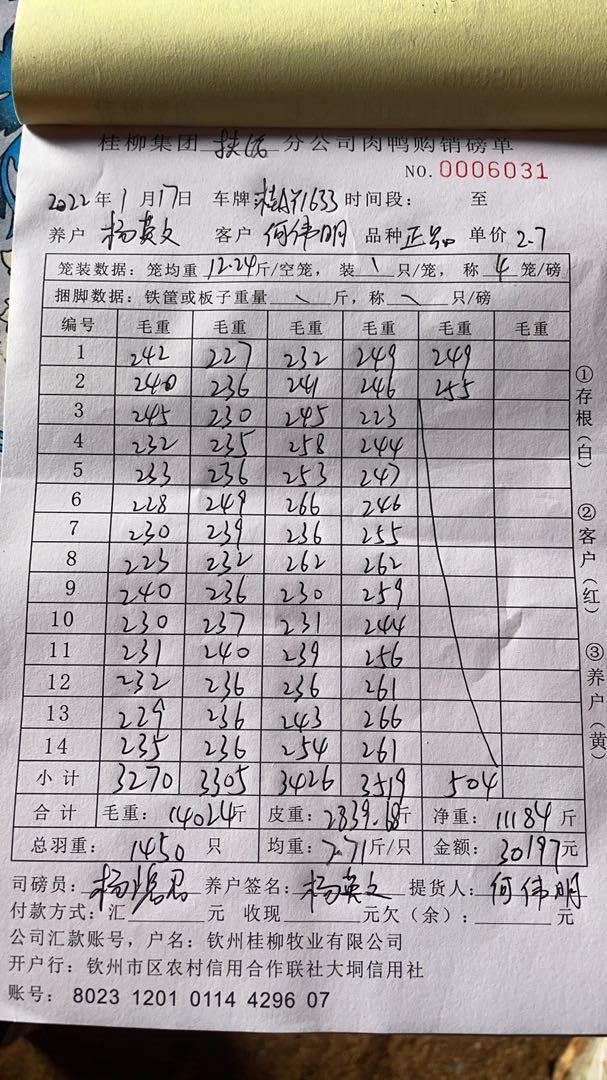 桂柳集团 扶绥 分公司肉鸭购销磅单
NO.0006031
2022年1月17日 车牌 桂AY1633 时间段： 至
养户 杨英文 客户 何伟明 品种 正品 单价 2.7
笼装数据：笼均重12.24斤/空笼，装 \ 只/笼，称 4 笼/磅
捆脚数据：铁筐或板子重量 \ 斤，称 \ 只/磅
编号 毛重 毛重 毛重 毛重 毛重 毛重
1 242 227 232 249 249
2 240 236 241 246 255
3 245 230 245 223
4 232 235 258 244
5 233 236 253 247
6 228 249 266 246
7 230 239 236 255
8 223 232 262 262
9 240 236 230 259
10 230 237 231 244
11 231 240 239 256
12 232 236 236 261
13 229 236 243 266
14 235 236 254 261
小计 3270 3305 3426 3519 504
合计 毛重：14024斤 皮重：2839.68斤 净重：11184斤
总羽重：1450只 均重：7.71斤/只 金额：30197元
司磅员：杨 养户签名：杨英文 提货人：何伟明
付款方式：汇 元 收现 元欠（余）： 元
公司汇款账号，户名：钦州桂柳牧业有限公司
开户行：钦州市区农村信用合作联社大垌信用社
账号：8023 1201 0114 4296 07
①存根（白）
②客户（红）
③养户（黄）